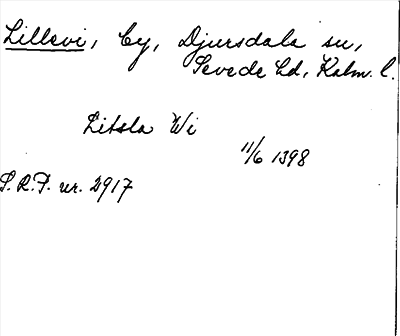 Lillevi, by, Djursdala sn,
Sevede hd, Kalm. l.
Litsla Wi
11/6 1398
S.R.P. nr. 2917